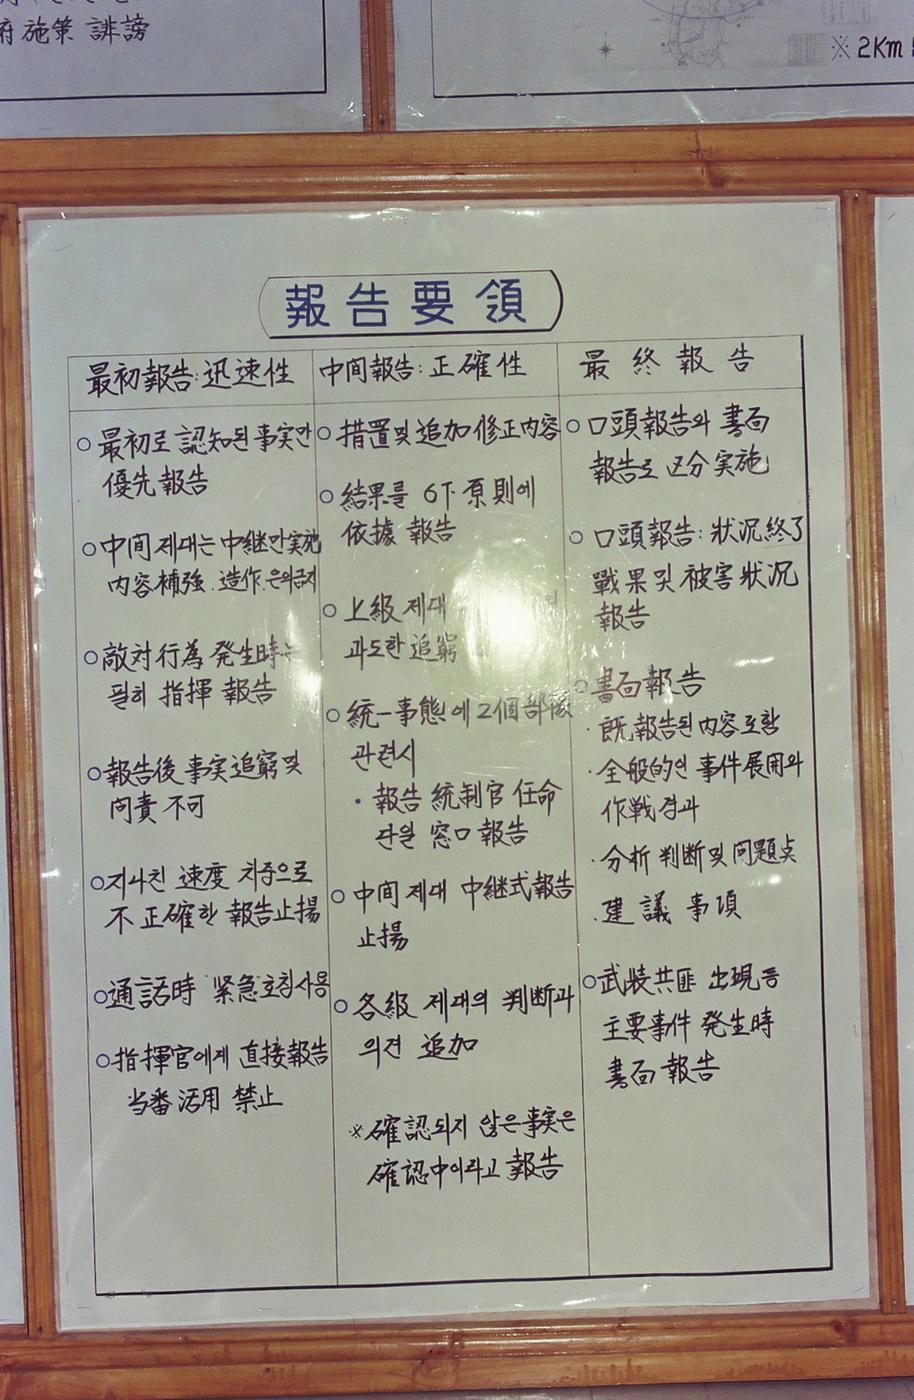 府 施策 誹謗
※ 2Km
報告要領
最初報告:迅速性
最初로 認知된 事実만
優先 報告
中間 제대는 中継만 実施
内容 補強. 造作은 의금지
敵対行為 発生時는
필히 指揮 報告
報告後 事実 追窮 및
问責 不可
지나친 速度 치중으로
不正確한 報告止揚
通話時 緊急호칭사용
指揮官에게 直接報告
当番 活用 禁止
中间報告:正確性
措置 및 追加 修正内容
結果를 6下 原則에
依據 報告
上級 제대
과도한 追窮
統一事態에 2個 部隊
관련시
· 報告 統制官 任命
단일 窓口 報告
中间 제대 中継式 報告
止揚
各級 제대의 判断과
의견 追加
※ 確認되지 않은 事実은
確認中이라고 報告
最終報告
口頭報告와 書面
報告로 区分 実施
口頭報告: 狀況終了
戰果 및 被害 狀況
報告
書面報告
· 既 報告된 内容 포함
· 全般的인 事件 展開와
作戦경과
· 分析 判断 및 问題点
· 建議 事項
武装共匪 出現 등
主要事件 発生時
書面 報告